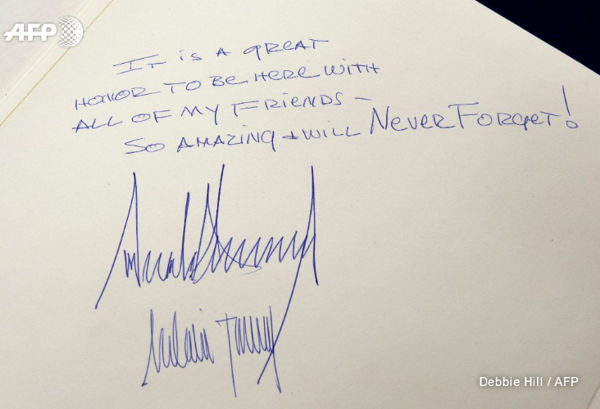 AFP
IT IS A GREAT
HONOR TO BE HERE WITH
ALL OF MY FRIENDS —
SO AMAZING + WILL NEVER FORGET!
Donald Trump
Melania Trump
Debbie Hill / AFP